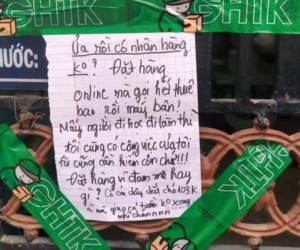 GHTK
GHTK
NƯỚC:
Ủa rồi có nhận hàng
ko? Đặt hàng
online mà gọi hết thuê
bao rồi máy bận!
Mấy người đi học đi làm thì
tôi cũng có công việc của tôi
tôi cũng cần kiếm cơm chứ!!!
Đặt hàng vì đam mê hay
gì? Có cái dây dắt chó 103K
mà giao cả tuần ko xong
nhi chánnnn
GHTK
GHTK